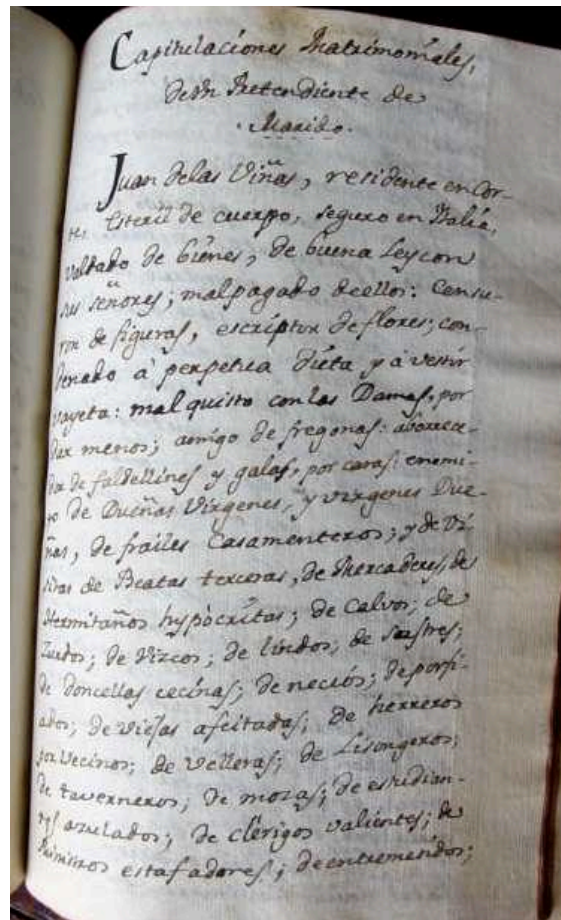 Capitulaciones Matrimoniales,
de Un Pretendiente de
Marido.
Juan delas Viñas, residente en Cor-
te, Esteril de cuerpo, seguro en Italia,
valdado de bienes, de buena Ley con
sus señores; mal pagado de ellos: Censu-
ron de figuras, escriptor de flores; con-
denado à perpetua dieta y à vestir
vayeta: mal quisto con las Damas, por
dar menos; amigo de fregonas: aborrece-
dor de faldellines y galas, por caras: enemi-
go de Dueñas Virgenes, y virgenes Due-
ñas, de frailes Casamenteros; y de Vi-
sitas de Beatas terceras, de Mercaderes, de
Hermitaños hypòcritas; de Calvos; de
Zurdos; de Vizcos; de lindos; de sastres;
de doncellas cecinas; de neciós; de porfi-
ados; de viejas afeitadas; de herreros
por Vecinos; de Velleras; de Lisongeros;
de taverneros; de mozas; de estudian-
tes azulados; de clérigos valientes; de
Ministros estafadores; de entremetidos;